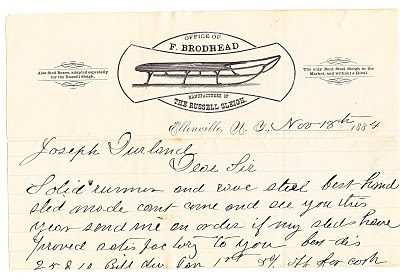 OFFICE OF
F. BRODHEAD
Also Sled Boxes, adapted especially
for the Russell Sleigh.
The only Bent Steel Sleigh in the
Market, and without a Rival.
MANUFACTURER OF
THE RUSSELL SLEIGH.
Ellenville, N. Y., Nov 18th 1884
Joseph Durland
Dear Sir
Solid runner and rave steel best hand
sled made cant come and see you this
year send me an order if my sleds have
proved satisfactory to you
25 & 10 Bill Jan 1st